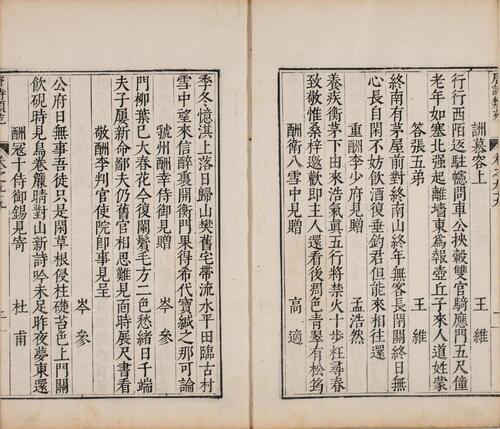 酬慕容上　王維
行行西陌返駐幰問車公挾轂雙官騎應門五尺僮
老年如塞北强起離墻東為報壺丘子來人道姓蒙
答張五弟　王維
終南有茅屋前對終南山終年無客長閉關終日無
心長自閑不妨飲酒復垂釣君但能來相往還
重酬李少府見贈　孟浩然
養疾衡茅下由來浩氣真五行將禁火十步枉尋春
致敬惟桑梓邀歡即主人還看後凋色青翠有松筠
酬衛八雪中見贈　高適
季冬憶淇上落日歸山樊舊宅帶流水平田臨古村
雪中望來信醉裏開衡門果得希代寶緘之那可論
虢州酬辛侍御見贈　岑參
門柳葉已大春花今復闌鬢毛方二色愁緒日千端
夫子屢新命鄙夫仍舊官相思難見面時展尺書看
敬酬李判官使院即事見呈　岑參
公府日無事吾徒只是閑草根侵柱礎苔色上門關
飲硯時見鳥卷簾晴對山新詩吟未足昨夜夢東還
酬寇十侍御錫見寄　杜甫